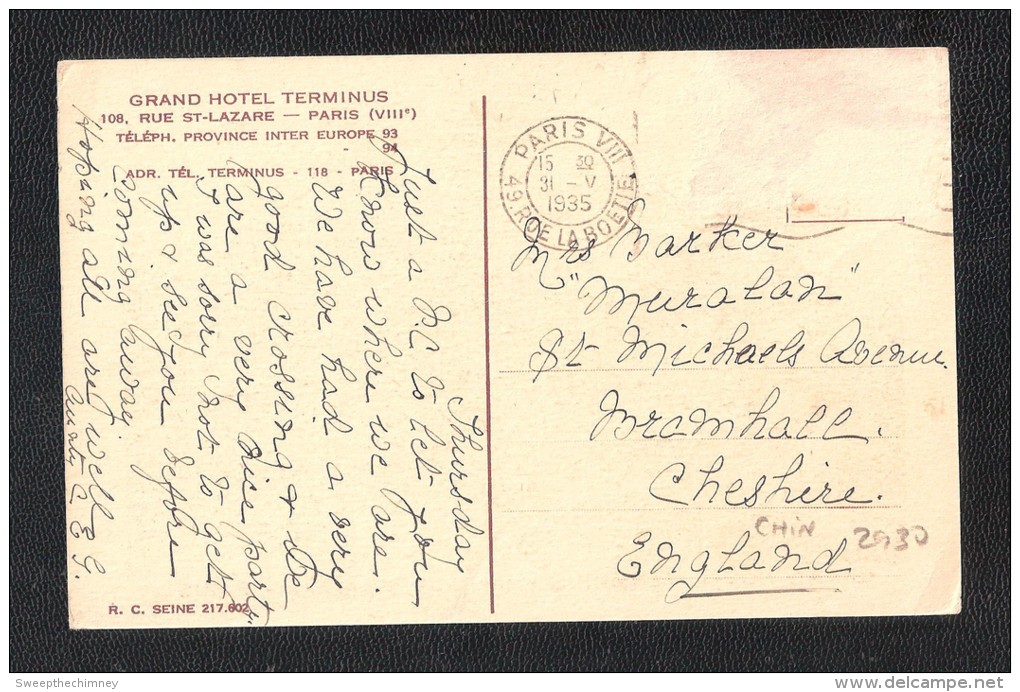 GRAND HOTEL TERMINUS
108, RUE ST-LAZARE — PARIS (VIIIe)
TÉLÉPH. PROVINCE INTER EUROPE 93
- 94
ADR. TÉL. TERMINUS - 118 - PARIS
Thursday
Just a P.C to let you
know where we are.
We have had a very
good crossing & we
are a very nice party
I was sorry not to get
up & see you before
coming away.
Hoping all are well
Aunty C E G.
R. C. SEINE 217.602
PARIS VIII
15 30
31 - V
1935
49, RUE LA BOETIE
Mrs Barker
"Muralan"
St Michaels Avenue.
Bramhall.
Cheshire.
England
CHIN 2930
Sweepthechimney
www.delcampe.net